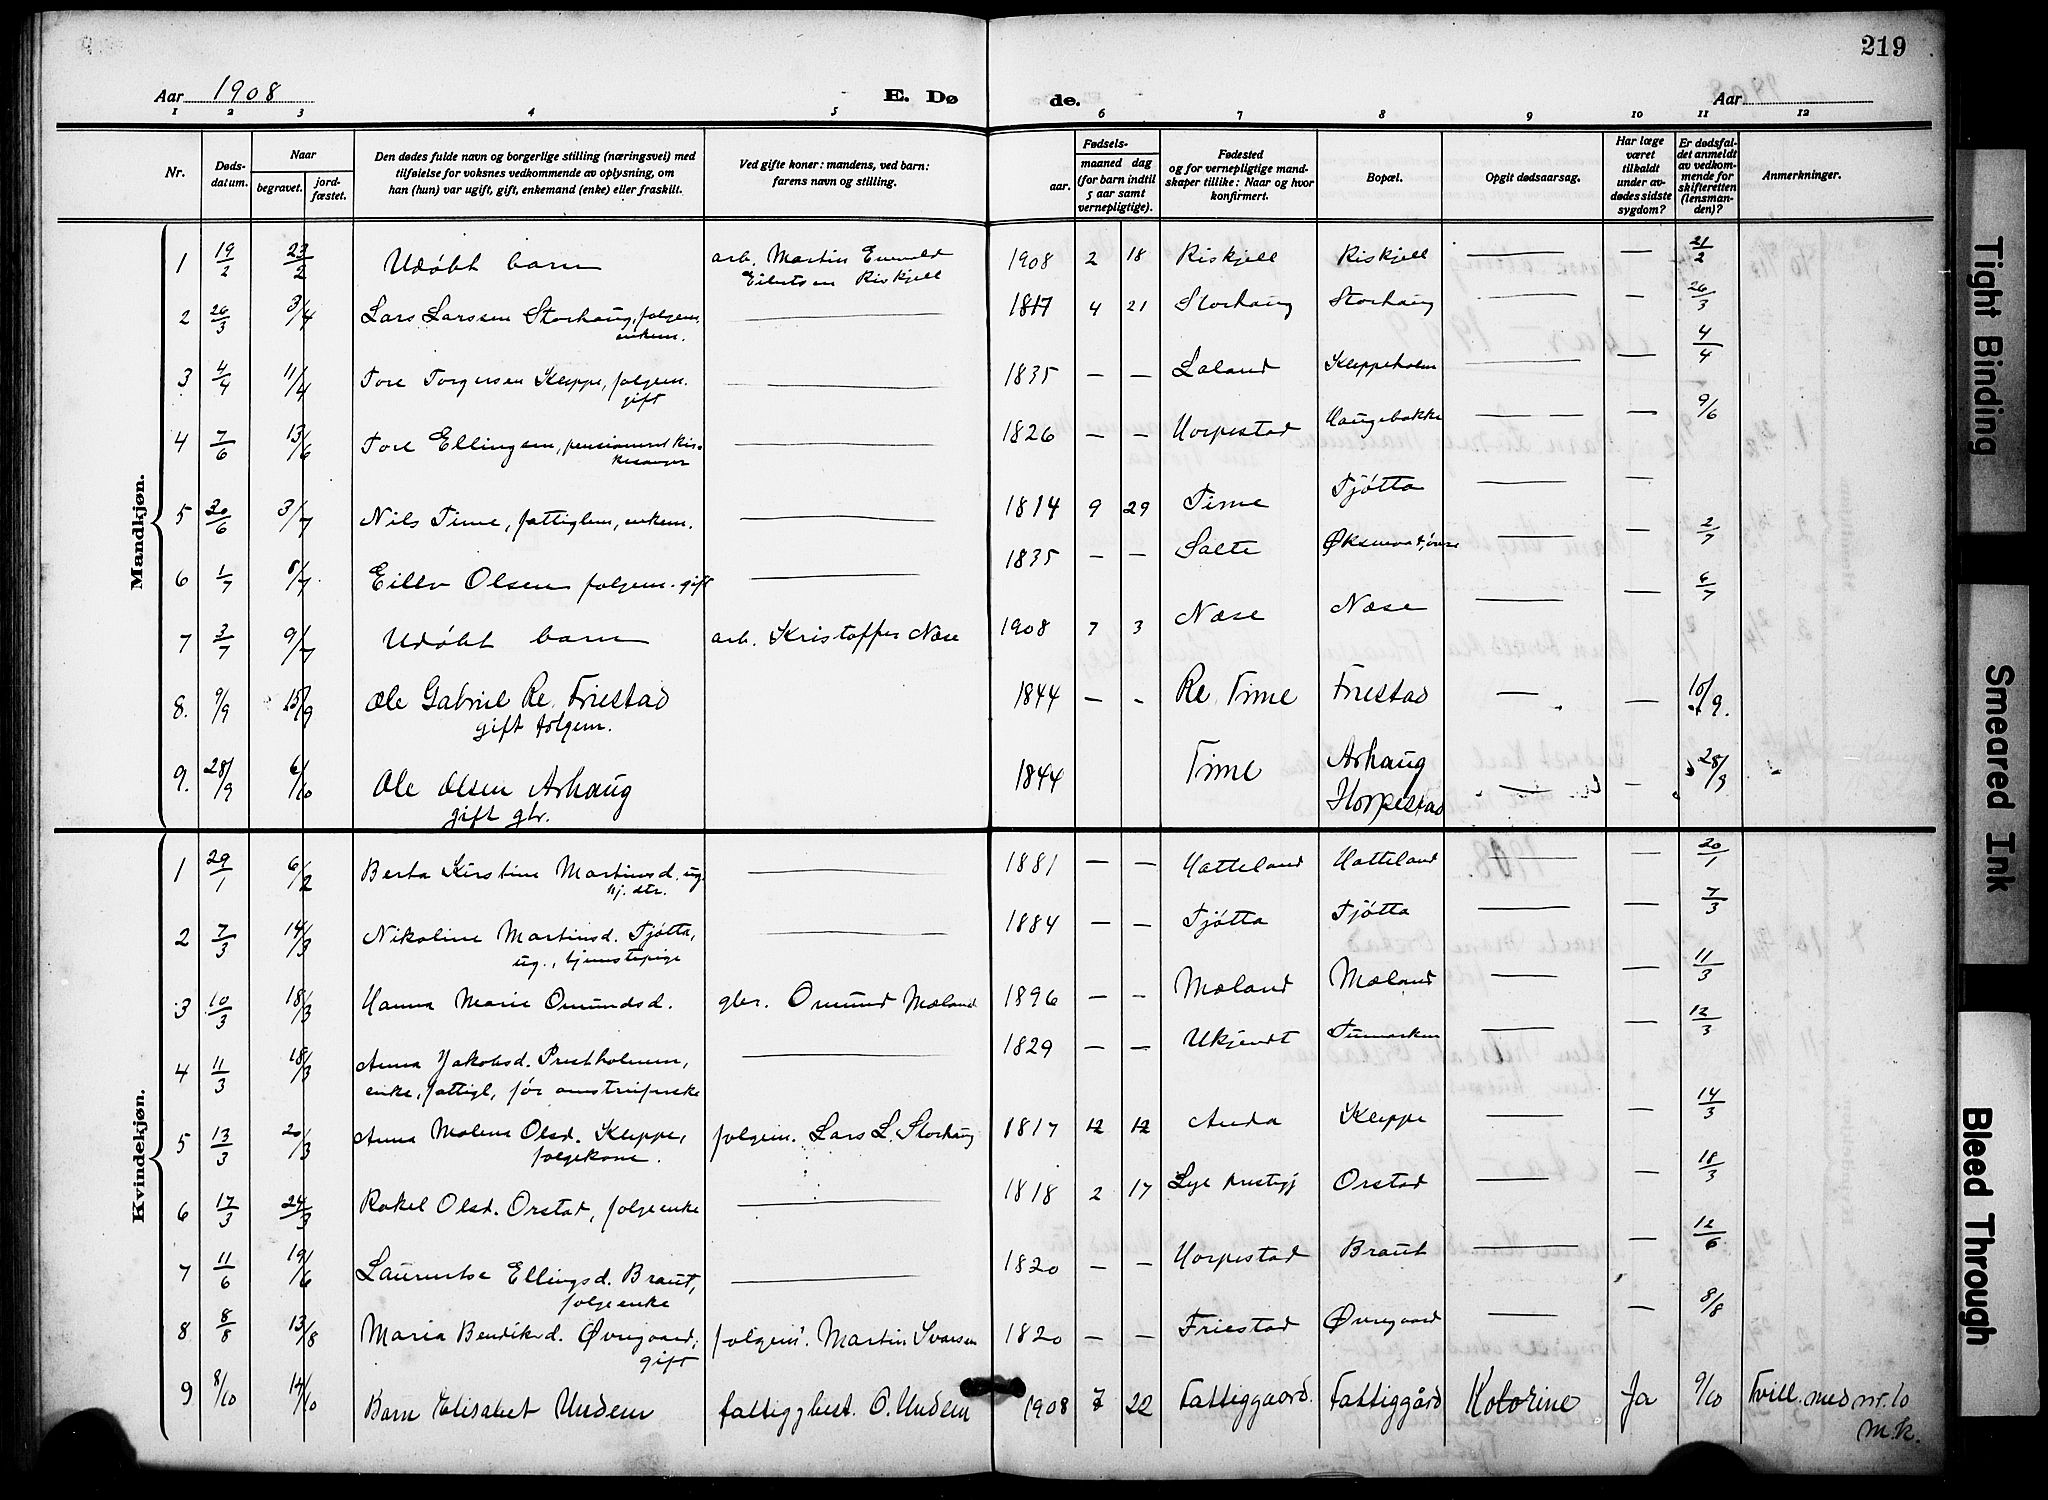 219
Aar 1908 E. Døde. Aar
1 2 3 4 5 6 7 8 9 10 11 12
Nr.
Døds-
datum.
Naar
begravet.
jord-
fæstet.
Den dødes fulde navn og borgerlige stilling (næringsvei) med
tilføielse for voksnes vedkommende av oplysning, om
han (hun) var ugift, gift, enkemand (enke) eller fraskilt.
Ved gifte koner: mandens, ved barn:
farens navn og stilling.
Fødsels-
aar.
maaned dag
(for barn indtil
5 aar samt
vernepligtige).
Fødested
og for vernepligtige mand-
skaper tillike: Naar og hvor
konfirmert.
Bopæl.
Opgit dødsaarsag.
Har læge
været
tilkaldt
under av-
dødes sidste
sygdom?
Er dødsfal-
det anmeldt
av vedkom-
mende for
skifteretten
(lensman-
den)?
Anmerkninger.
Mandkjøn.
1 19/2 23/2 Udøbt barn arb. Martin Enevald 1908 2 18 Riskjell Riskjell — — 21/2
Eilertsen Riskjell
2 26/3 3/4 Lars Larssen Storhaug, folgem. — 1817 4 21 Storhaug Storhaug — — 26/3
enkem.
3 4/4 11/4 Tore Torgersen Kleppe, folgem. — 1835 — — Laland Kleppeholen — — 4/4
gift
4 7/6 13/6 Tore Ellingsen, pensioneret kir- — 1826 — — Horpestad Haugebakke — — 9/6
kesanger
5 30/6 3/7 Nils Time, fattiglem, enkem. — 1814 9 29 Time Tjøtta — —
6 1/7 8/7 Eilev Olsen folgem. gift — 1835 — — Salte — — 2/7
7 3/7 9/7 Udøbt barn arb. Kristoffer Næse 1908 7 3 Næse Næse — — 6/7
8. 9/9 15/9 Ole Gabriel Re. Friestad 1844 — - Re. Time Friestad — — 10/9.
gift folgem.
9. 28/9 6/10 Ole Olsen Arhaug 1844 Time Arhaug — — 28/9
gift gbr. Horpestad
Kvindekjøn.
1 29/1 6/2 Berta Kirstine Martinsd. ug. — 1881 — — Hatteland Hatteland — — 20/1
hj. dtr.
2 7/3 14/3 Nikoline Martinsd. Tjøtta, — 1884 — — Tjøtta Tjøtta — — 7/3
ug., tjenstepige
3 10/3 18/3 Hanna Marie Omundsd. gbr. Omund Mæland 1896 — - Mæland Mæland — — 11/3
4 11/3 18/3 Anna Jakobsd. Prestholmen, — 1829 — — Ukjendt Tumarken — — 12/3
enke, fattigl, før
5 13/3 20/3 Anna Malena Olsd. Kleppe, folgem. Lars L. Storhaug 1817 12 12 Anda Kleppe — — 14/3
folgekone.
6 17/3 24/3 Rakel Olsd. Orstad, folgeenke — 1818 2 17 Lye prestegj Orstad — — 18/3
7 11/6 19/6 Laurentse Ellingsd. Braut, — 1820 — — Horpestad Braut — — 12/6
folgeenke
8 8/8 13/8 Maria Bendiksd. Øvregaard, folgem. Martin Ivarsen 1820 — — Friestad Øvregaard — — 8/8
gift
9 8/10 14/10 Barn Elisabet Undem fattiggbest. O. Undem 1908 7 22 Fattiggaard. Fattiggård Kolorine Ja 9/10 Tvill. med nr. 10
M.k.
Tight Binding
Smeared Ink
Bleed Through